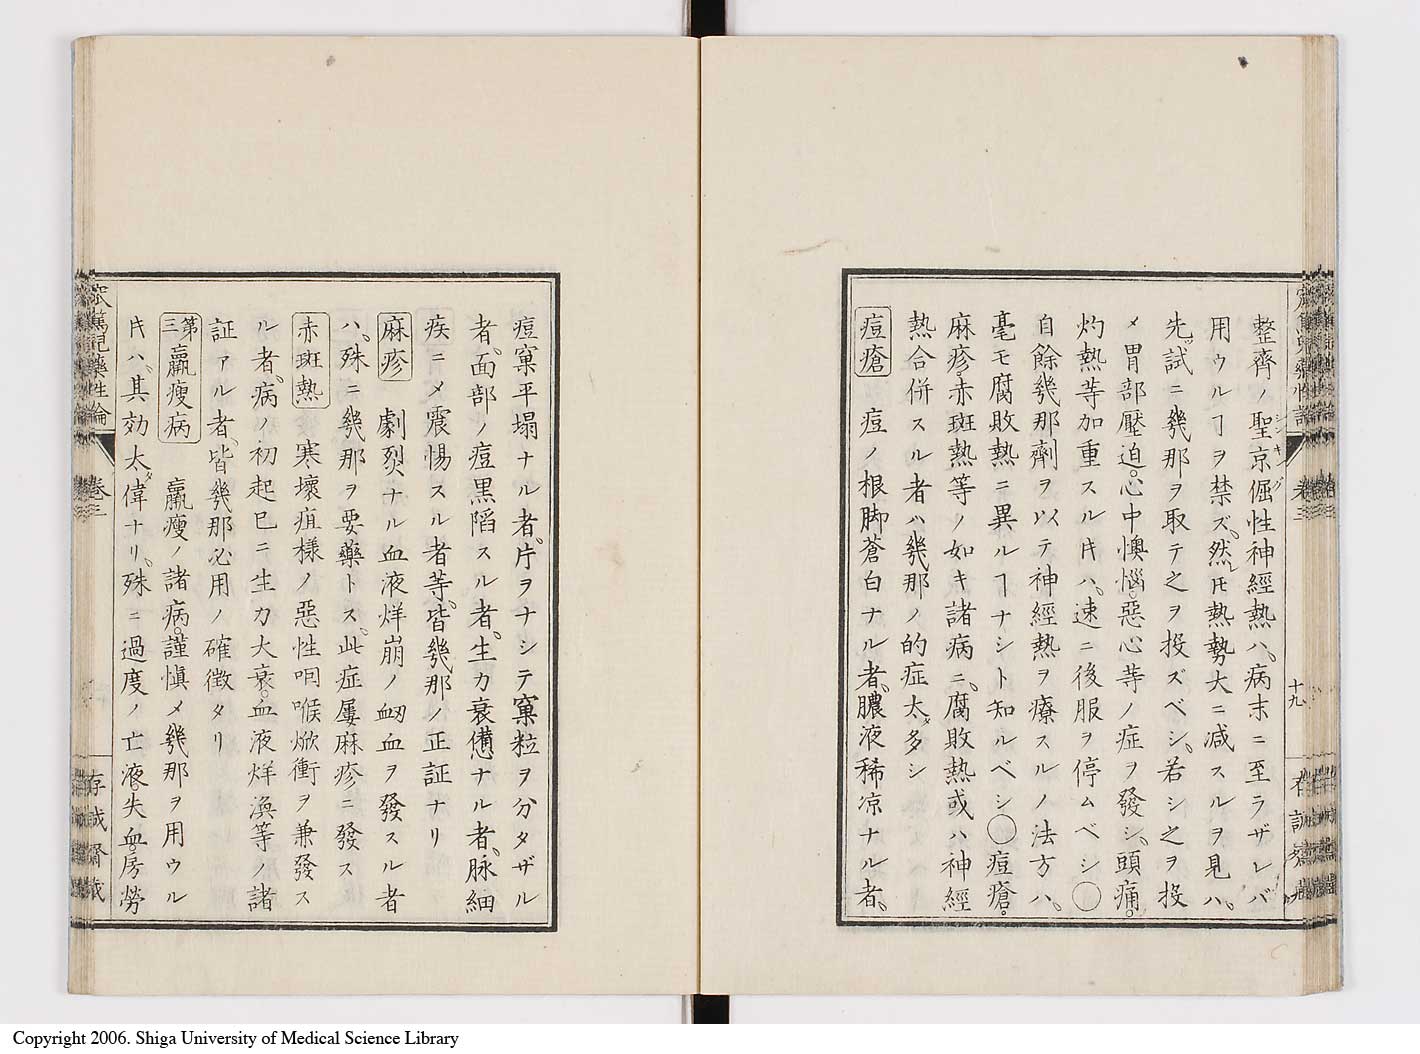 整齊ノ聖京倔性神經熱ハ、病末ニ至ラザレバ
シンキング
用ウルヿヲ禁ズ、然レ𪜈熱勢大ニ減スルヲ見ハ、
先試ニ幾那ヲ取テ之ヲ投ズベシ、若シ之ヲ投
メ胃部壓迫。心中懊惱。惡心等ノ症ヲ發シ、頭痛。
灼熱等加重スル𪜈ハ、速ニ後服ヲ停ムベシ〇
自餘幾那劑ヲ以テ神經熱ヲ療スルノ法方ハ、
毫モ腐敗熱ニ異ルヿナシト知ルベシ〇痘瘡。
麻疹。赤斑熱等ノ如キ諸病ニ、腐敗熱或ハ神經
熱合併スル者ハ幾那ノ的症太タ多シ
痘瘡 痘ノ根脚蒼白ナル者、膿液稀凉ナル者、
卷三
十九
痘窠平塌ナル者、片ヲナシテ窠粒ヲ分タザル
者、面部ノ痘黒陷スル者、生力衰憊ナル者、脉細
疾ニメ震惕スル者等、皆幾那ノ正証ナリ
麻疹 劇烈ナル血液烊崩ノ衂血ヲ發スル者
ハ、殊ニ幾那ヲ要藥トス、此症屢麻疹ニ發ス
赤斑熱 寒壞疽樣ノ惡性咽喉焮衝ヲ兼發ス
ル者、病ノ初起已ニ生力大衰。血液烊渙等ノ諸
証アル者、皆幾那必用ノ確徴タリ
第三羸瘦病 羸瘦ノ諸病。謹愼メ幾那ヲ用ウル
𪜈ハ、其効太タ偉ナリ、殊ニ過度ノ亡液。失血。房勞
篤兒藥性論
卷三
存誠齋藏
Copyright 2006. Shiga University of Medical Science Library